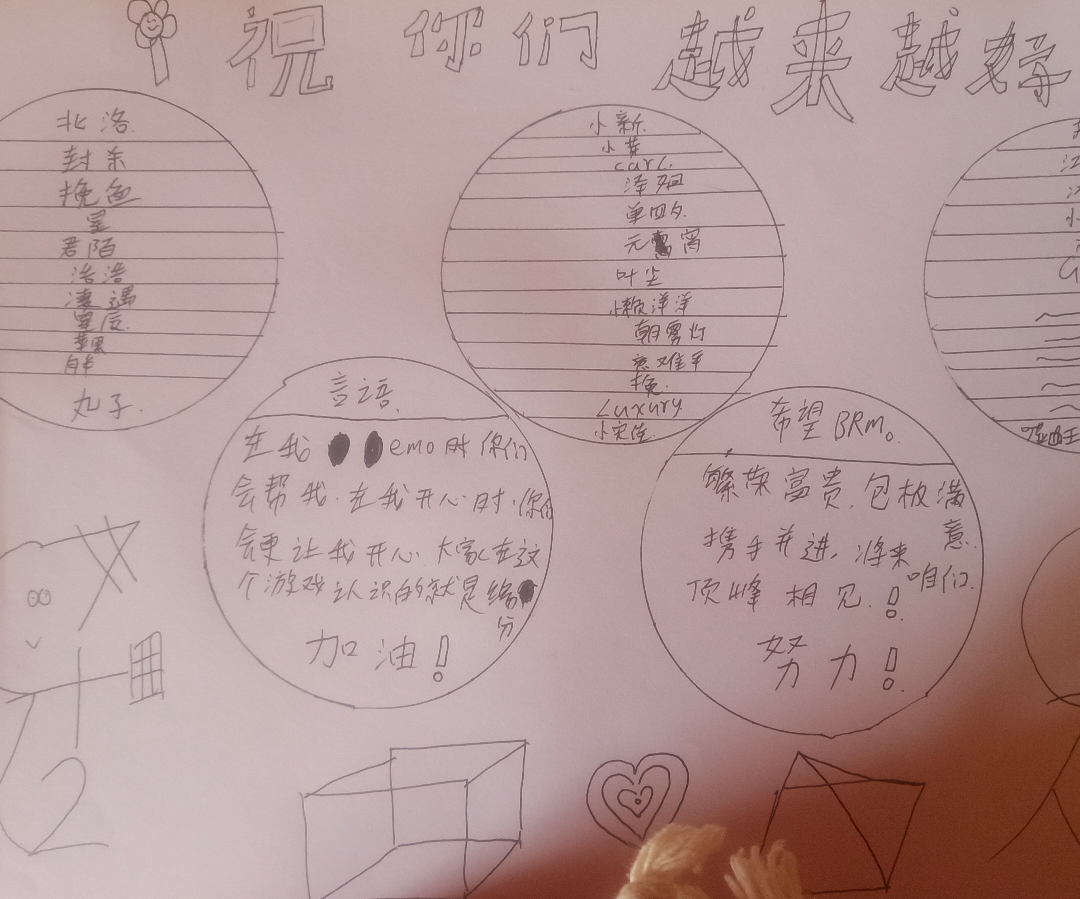 祝你们越来越好
北洛
封杀
挽鱼
星
君陌
浩浩
凌遇
星辰
苹果
丸子.
小新.
小黄
curl.
泽
单四夕.
元宵
叶尘
小懒洋洋
朝雾灯
意难平
挽.
Luxury
小宋佳.
江
小
言语.
在我emo时你们
会帮我.在我开心时.你们
会更让我开心.大家在这
个游戏认识的就是缘
分
加油!
希望BRM。
繁荣富贵.包板满
意.
携手并进.将来
咱们.
顶峰相见.!
努力!